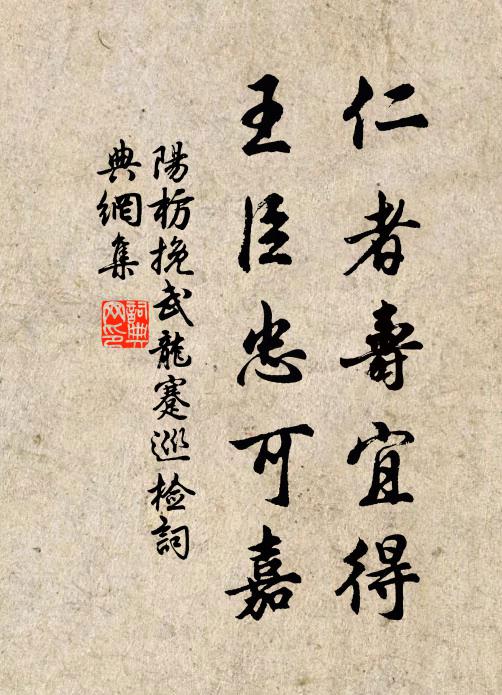 仁者壽宜得
王臣忠可嘉
陽枋挽武龍蹇巡檢詞
典網集
詞典網印